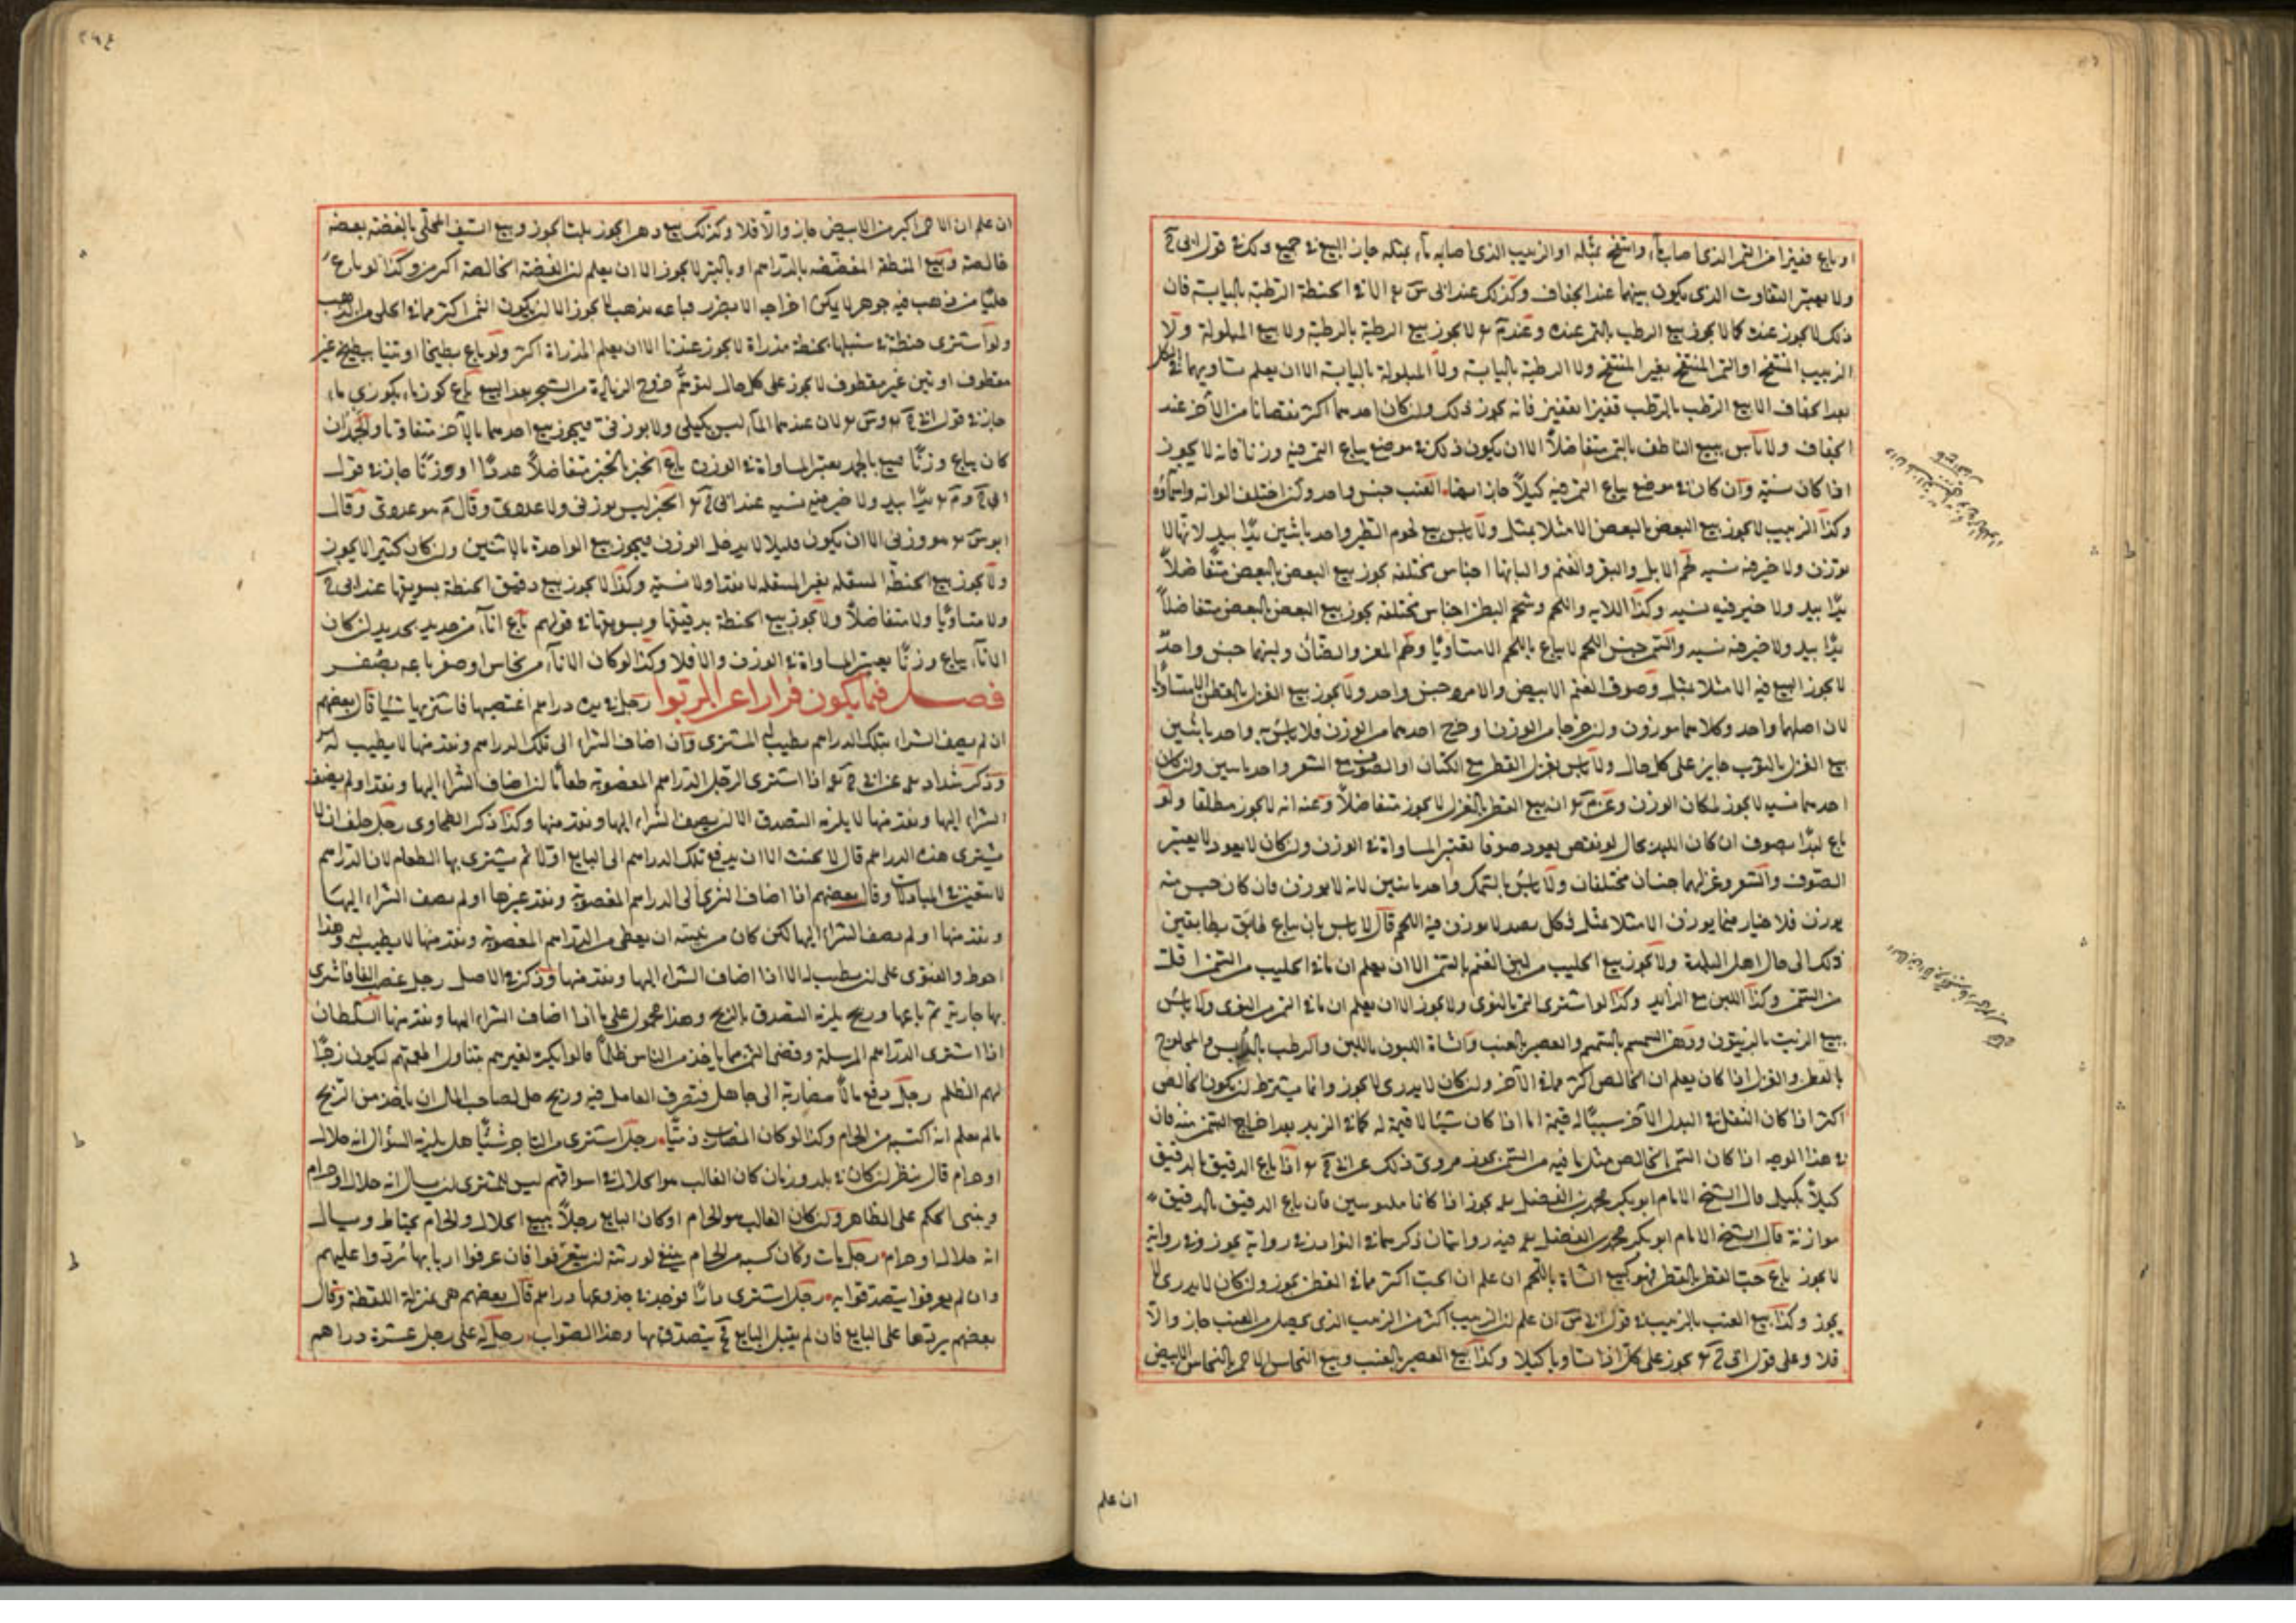 او باع قفيزا من التمر الذى اصابه ماء وانتفخ بمثله او الزبيب الذى اصابه ماء بمثله جاز البيع فى جميع ذلك فى قول ابى ح
ولا يعتبر التفاوت الذى يكون بينهما عند الجفاف وكذلك عند ابى س الا فى الحنطة الرطبة باليابسة فان
ذلك لا يجوز عنده كما لا يجوز بيع الرطب بالتمر عنده وعند م لا يجوز بيع الرطبة بالرطبة ولا بيع المبلولة ولا
الزبيب المنتفخ او التمر المنتفخ بغير المنتفخ ولا الرطبة باليابسة ولا المبلولة باليابسة الا ان يعلم تساويهما فى الكيل
بعد الجفاف الا بيع الرطب بالرطب قفيزا بقفيز فانه يجوز ذلك وان كان احدهما اكثر نقصانا من الآخر عند
الجفاف ولا بأس ببيع الناطف بالتمر متفاضلاً الا ان يكون ذلك فى موضع يباع التمر فيه وزنا فانه لا يجوز
اذا كان نسية وان كان فى موضع يباع التمر فيه كيلاً جاز ايضا العنب جنس واحد وان اختلف الوانه واسماؤه
وكذا الزبيب لا يجوز بيع البعض بالبعض الا مثلا بمثل ولا باس ببيع لحوم الطير واحد باثنين يدًا بيد لانها لا
توزن ولا خير فيه نسيه لحم الابل والبقر والغنم والبانها اجناس مختلفة يجوز بيع البعض بالبعض متفاضلاً
يدًا بيد ولا خير فيه نسيه وكذا الالية واللحم وشحم البطن اجناس مختلفه يجوز بيع البعض بالبعض متفاضلاً
يدًا بيد ولا خير فيه نسيه والتمر جنس اللحم لا يباع باللحم الا متساويًا ولحم المعز والضان ولبنهما جنس واحدٌ
لا يجوز البيع فيه الا مثلا بمثل وصوف الغنم الابيض والاسود جنس واحد ولا يجوز بيع الغزل بالقطن الا متساويًا
لان اصلهما واحد وكلاهما موزون وان خرجا من الوزن او خرج احدهما من الوزن فلا باس به واحد باثنين
بيع الغزل بالثوب جايز على كل حال ولا باس بغزل القطن مع الكتان او الصوف مع الشعر واحد باثنين وان كان
احدهما نسيه لا يجوز لمكان الوزن وعن م ان بيع القطن بالغزل لا يجوز متفاضلاً وعنه انه لا يجوز مطلقا ولو
باع لبدًا بصوف ان كان اللبد بحال لو نقض يعود صوفا تعتبر المساواة فى الوزن وان كان لا يعود لا يعتبر
الصوف والشعر وغزلهما جنسان مختلفان ولا باس بالسمك واحد باثنين لانه لا يوزن فان كان جنس منه
يوزن فلا خيار فيما يوزن الا مثلا بمثل
ذلك الى حال اهل البلدة ولا يجوز بيع الحليب من لبن الغنم بالسمن الا ان يعلم ان ما فى الحليب من السمن اقل
من السمن وكذا اللبن مع الزبد وكذا لو اشترى التمر بالنوى ولا يجوز الا ان يعلم ان ما فى التمر من النوى ولا باس
ببيع الزيت بالزيتون ودهن السمسم بالسمسم والعصير بالعنب والشاة اللبون باللبن والرطب بالدبس والمحلوج
بالقطن والغزل اذا كان يعلم ان الخالص اكثر مما فى الآخر وان كان لا يدرى لا يجوز وانما يشترط ان يكون الخالص
اكثر اذا كان الثفل فى البدل الآخر شيئًا له قيمة اما اذا كان شيئا لا قيمة له كما فى الزبد بعد اخراج السمن منه فان
فى هذا الوجه اذا كان السمن الخالص مثل ما فيه من السمن يجوز مروى ذلك عن ابى ح اذا باع الدقيق بالدقيق
كيلاً بكيل قال الشيخ الامام ابو بكر محمد بن الفضل يجوز اذا كانا مكبوسين فان باع الدقيق بالدقيق
موازنة قال الشيخ الامام ابو بكر محمد بن الفضل فيه روايتان ذكرهما فى النوادر فى رواية يجوز وفى رواية
لا يجوز باع حب القطن بالقطن فهو كبيع الشاة باللحم ان علم ان الحب اكثر مما فى القطن يجوز وان كان لا يدرى لا
يجوز وكذا بيع العنب بالزبيب فى قول ابى س ان علم ان الزبيب اكثر من الزبيب الذى يحصل من العنب جاز والا
فلا وعلى قول ابى ح يجوز على كل اذا تساويا كيلا وكذا بيع العصير بالعنب وبيع النحاس الاحمر بالنحاس الابيض
ان علم
ان علم ان الاحمر اكثر من الابيض جاز والّا فلا وكذلك بيع وبيع السيف المحلّى بالفضة بفضة
خالصة وبيع المنطقة المفضضه بالدراهم او بالتبر لا يجوز الا ان يعلم ان الفضة الخالصة اكثر وكذا لو باع
حليًا من ذهب فيه جوهر لا يمكن اخراجه الا بضرر فباعه بذهب لا يجوز الا ان يكون الثمن اكثر مما فى الحلى من الذهب
ولو اشترى حنطة فى سنبلها بحنطة مذراة لا يجوز عندنا الا ان يعلم المذراة اكثر ولو باع بطيخا او تينا ببطيخ غير
مقطوف او تين غير مقطوف لا يجوز على كل حال لتوهم خروج الزيادة من الشجر بعد البيع باع كوز ماء بكوزى ماء
جاز فى قول ابى ح وس لان عندهما الماء ليس بكيلى ولا بوزنى فيجوز بيع احدهما بالآخر متفاوتا والجمد ان
كان يباع وزنًا فبيع بالجمد يعتبر المساواة فى الوزن باع الخبز بالخبز متفاضلاً عددًا او وزنًا جاز فى قول
ابى ح وم يدًا بيد ولا خير فيه نسيه عند ابى ح الخبز ليس بوزنى ولا عددى وقال م هو عددى وقال
ابو س هو وزنى الا ان يكون قليلا لا يدخل الوزن فيجوز بيع الواحدة بالاثنين وان كان كثيرا لا يجوز
ولا يجوز بيع الحنطة المقلية بغير المقلية لا نقدا ولا نسية وكذا لا يجوز بيع دقيق الحنطة بسويقها عند ابى ح
ولا متساويًا ولا متفاضلاً ولا يجوز بيع الحنطة بدقيقها وبسويقها فى قولهم باع اناء من حديد بحديد ان كان
الاناء يباع وزنًا يعتبر المساواة فى الوزن والا فلا وكذا لو كان الاناء من نحاس او صفر باعه بصُفر
فصل فيما يكون فرارا عن الربوا رجل فى يده دراهم اغتصبها فاشترى بها شيئا قال بعضهم
ان لم يضف الشراء بتلك الدراهم يطيب المشترى وان اضاف الشراء الى تلك الدراهم ونقد منها لا يطيب له
وذكر شداد عن ابى ح اذا اشترى الرجل بالدراهم المغصوبة طعامًا ان اضاف الشراء اليها ونقد او لم يضف
الشراء اليها ونقد منها لا يلزمه التصدق الا ان يضيف الشراء اليها ونقد منها وكذا ذكر الطحاوى رجل حلف ان لا
يشترى هذه الدراهم قال لا يحنث الا ان يدفع تلك الدراهم الى البايع اولا ثم يشترى بها الطعام لان الدراهم
لا تتعين فى المبادلات وقال بعضهم اذا اضاف الشراء الى الدراهم المغصوبة ونقد غيرها او لم يضف الشراء اليها
ونقد منها او لم يضف الشراء اليها لكن كان من نيته ان يعطى من الدراهم المغصوبة ونقد منها لا يطيب له وهذا
احوط والفتوى على ان يطيب له الا اذا اضاف الشراء اليها ونقد منها وذكر فى الاصل رجل غصب الفا فاشترى
بها جارية ثم باعها وربح يلزمه التصدق بالربح وهذا محمول على ما اذا اضاف الشراء اليها ونقد منها السلطان
اذا اشترى الدراهم المرسلة وقضى الثمن مما ياخذ من الناس ظلمًا قالوا يكره لغيرهم تناول اطعمتهم ليكون زجرًا
لهم الظلم رجل دفع مالاً مضاربة الى جاهل فتصرف العامل فيه وربح حل لصاحب المال ان ياخذ من الربح
ما لم يعلم انه اكتسبه من الحرام وكذا لو كان المضارب ذميًا رجل اشترى من التاجر شيئًا هل يلزمه السؤال انه حلال
او حرام قال ينظر ان كان فى بلد وزمان كان الغالب هو الحلال فى اسواقهم ليس للمشترى ان يسال انه حلال او حرام
ويبنى الحكم على الظاهر وان كان الغالب هو الحرام او كان البايع رجلاً يبيع الحلال والحرام يحتاط ويسال
انه حلال او حرام رجل مات وكان كسبه من الحرام ينبغى لورثته ان يتعرّفوا فان عرفوا اربابها تُردّوا عليهم
وان لم يعرفوا يتصدقوا به رجل اشترى دارًا فوجد فى جذوعها دراهم قال بعضهم هى بمنزلة اللقطة وقال
بعضهم يردّها على البايع فان لم يقبل البايع يتصدق بها وهذا الصواب رجل له على رجل عشرة دراهم